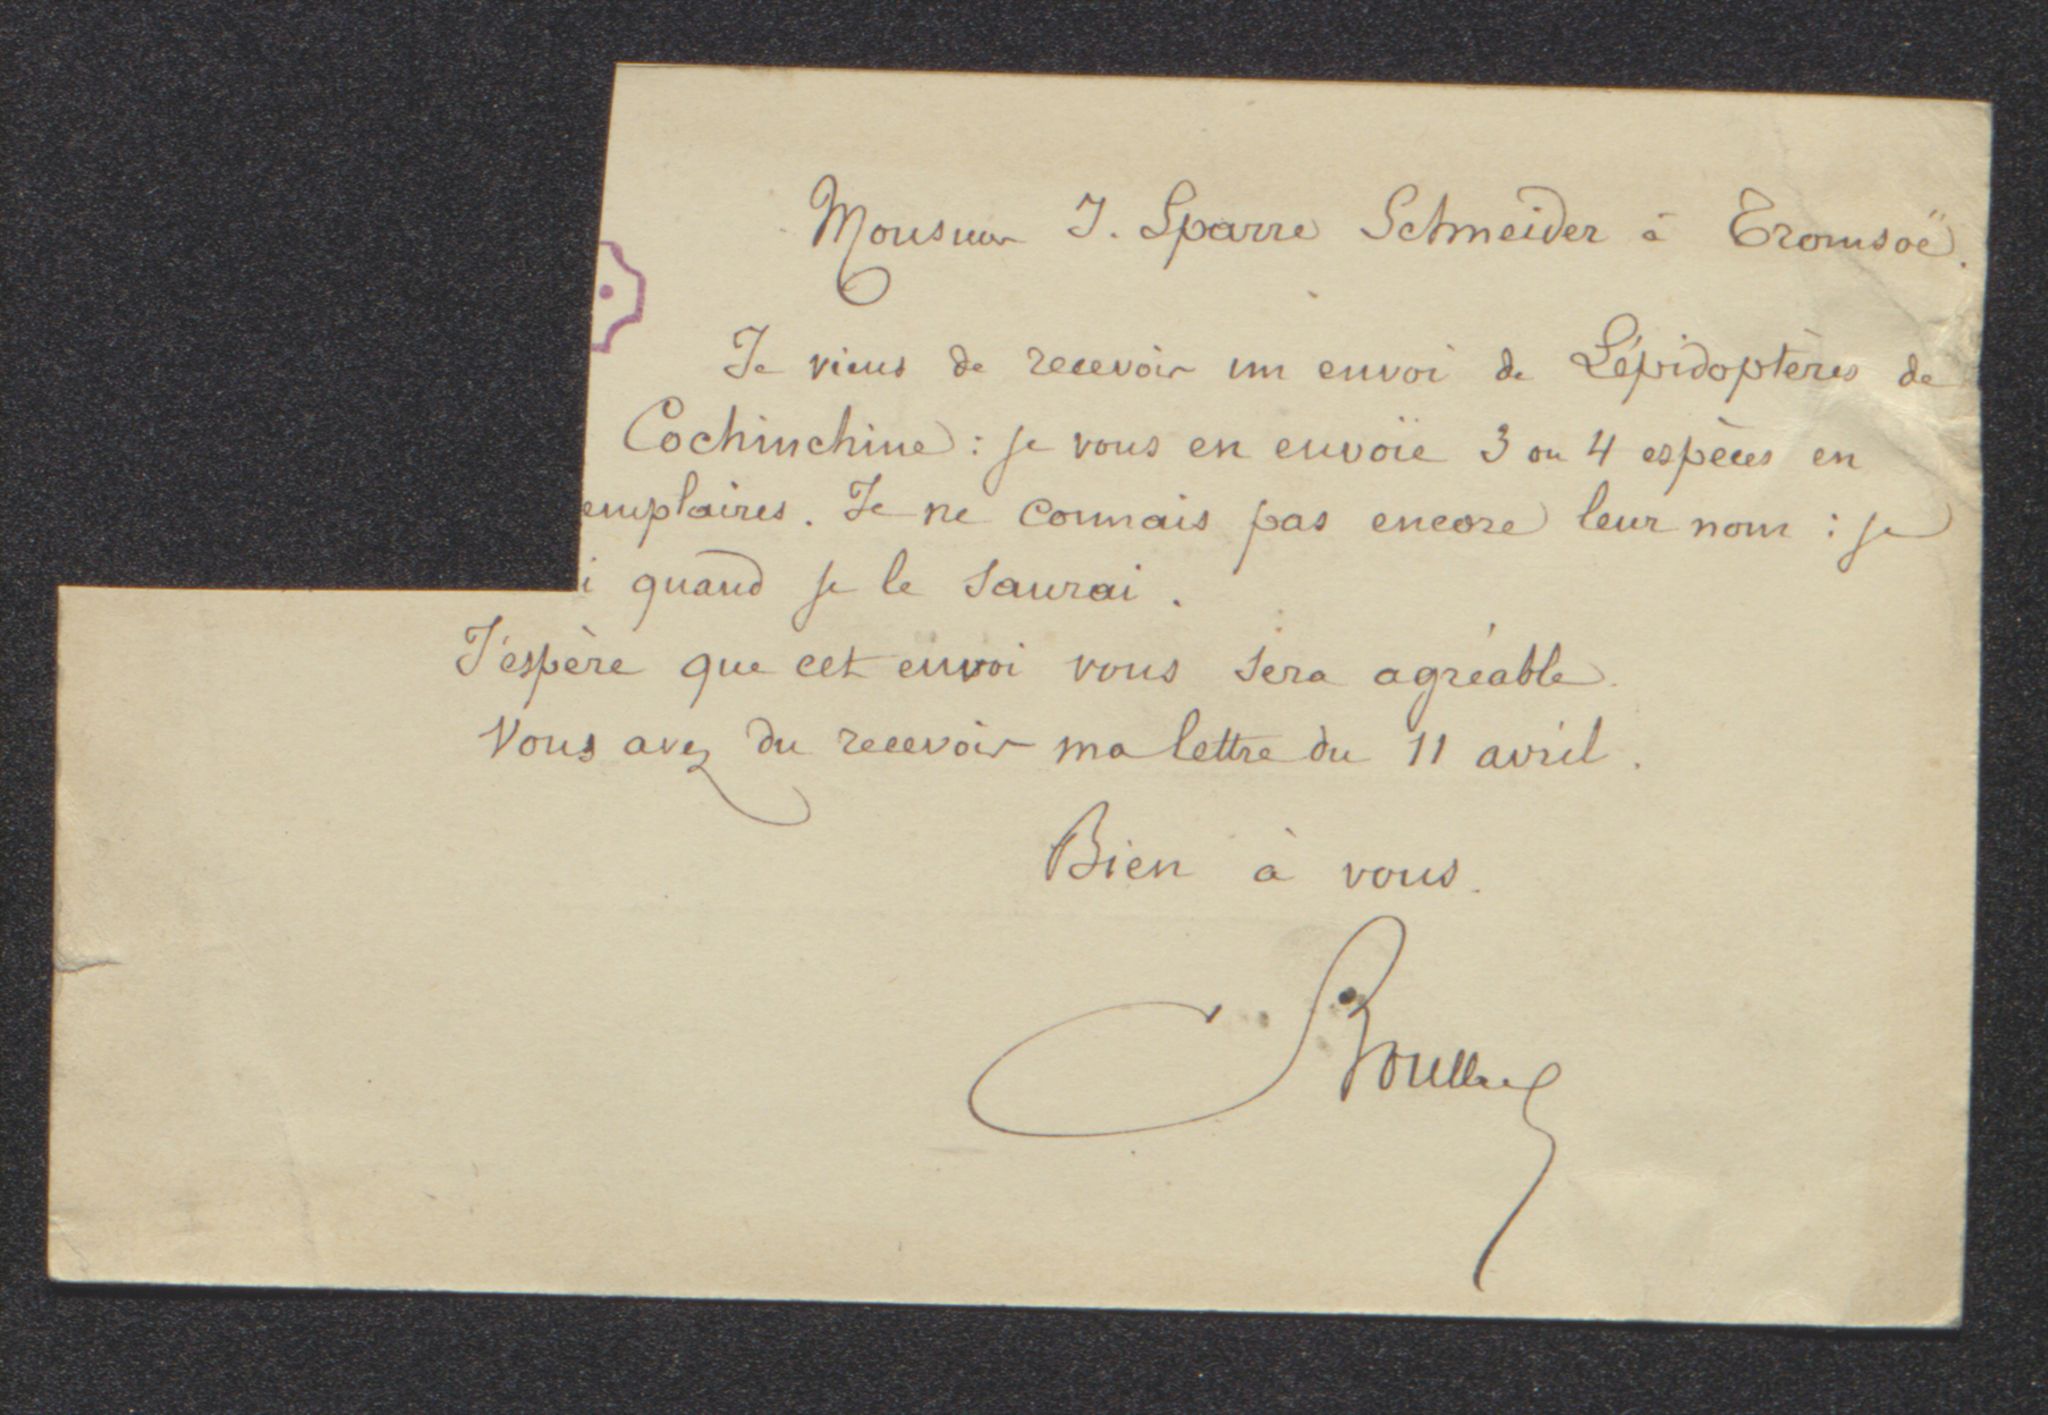 Monsieur J. Sparre Schneider à Tromsoë.
Je viens de recevoir un envoi de Lépidoptères de
Cochinchine : je vous en envoïe 3 ou 4 espèces en
emplaires. Je ne connais pas encore leur nom : je
i quand je le saurai.
J'espère que cet envoi vous sera agréable.
Vous avez du recevoir ma lettre du 11 avril.
Bien à vous.